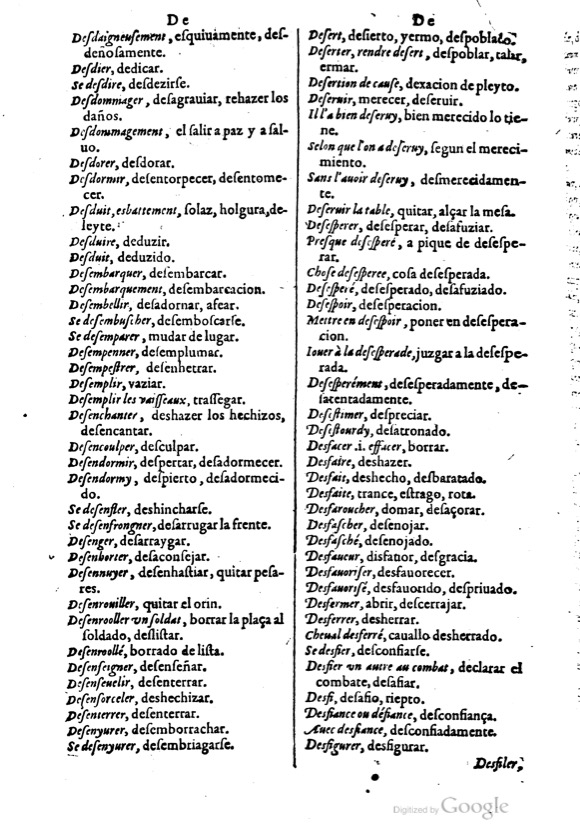 De
Deſdaigneuſement, eſquiuamente, deſ-
deñoſamente.
Deſdier, dedicar.
Se deſdire, deſdezirſe.
Deſdommager, deſagrauiar, rehazer los
daños.
Deſdommagement, el ſalir a paz y a ſal-
uo.
Deſdorer, deſdorar.
Deſdormir, deſentorpecer, deſentome-
cer.
Deſduit, esbattement, ſolaz, holgura, de-
leyte.
Deſduire, deduzir.
Deſduit, deduzido.
Deſembarquer, deſembarcar.
Deſembarquement, deſembarcacion.
Deſembellir, deſadornar, afear.
Se deſembuſcher, deſemboſcarſe.
Se deſemparer, mudar de lugar.
Deſempenner, deſemplumar.
Deſempeſtrer, deſenhetrar.
Deſemplir, vaziar.
Deſemplir les vaiſſeaux, traſſegar.
Deſenchanter, deshazer los hechizos,
deſencantar.
Deſencoulper, deſculpar.
Deſendormir, deſpertar, deſadormecer.
Deſendormy, deſpierto, deſadormeci-
do.
Se deſenfler, deshincharſe.
Se deſenfrongner, deſarrugar la frente.
Deſenger, deſarraygar.
Deſenhorter, deſaconſejar.
Deſennuyer, deſenhaſtiar, quitar peſa-
res.
Deſenrouiller, quitar el orin.
Deſenrooller vn ſoldat, borrar la plaça al
ſoldado, desliſtar.
Deſenroollé, borrado de liſta.
Deſenſeigner, deſenſeñar.
Deſenſeuelir, deſenterrar.
Deſenſorceler, deshechizar.
Deſenterrer, deſenterrar.
Deſenyurer, deſemborrachar.
Se deſenyurer, deſembriagarſe.
De
Deſert, deſierto, yermo, deſpoblado.
Deſerter, rendre deſert, deſpoblar, talar,
ermar.
Deſertion de cauſe, dexacion de pleyto.
Deſeruir, merecer, deſeruir.
Il l'a bien deſeruy, bien merecido lo tie-
ne.
Selon que l'on a deſeruy, ſegun el mereci-
miento.
Sans l'auoir deſeruy, deſmerecidamen-
te.
Deſeruir la table, quitar, alçar la meſa.
Deſeſperer, deſeſperar, deſafuziar.
Preſque deſeſperé, a pique de deſeſpe-
rar.
Choſe deſeſperee, coſa deſeſperada.
Deſeſperé, deſeſperado, deſafuziado.
Deſeſpoir, deſeſperacion.
Mettre en deſeſpoir, poner en deſeſpera-
cion.
Iouer à la deſeſperade, juzgar a la deſeſpe-
rada.
Deſeſperément, deſeſperadamente, de-
ſatentadamente.
Deſeſtimer, deſpreciar.
Deſeſtourdy, deſatronado.
Desfacer .i. effacer, borrar.
Desfaire, deshazer.
Desfait, deshecho, deſbaratado.
Desfaite, trance, eſtrago, rota.
Desfaroucher, domar, deſaçorar.
Desfaſcher, deſenojar.
Desfaſché, deſenojado.
Desfaueur, disfauor, deſgracia.
Desfauoriſer, desfauorecer.
Desfauoriſé, desfauorido, deſpriuado.
Desfermer, abrir, deſcerrajar.
Desferrer, desherrar.
Cheual desferré, cauallo desherrado.
Se desfier, deſconfiarſe.
Desfier vn autre au combat, declarar el
combate, deſafiar.
Desfi, deſafio, riepto.
Desfiance ou défiance, deſconfiança.
Auec desfiance, deſconfiadamente.
Desfigurer, desfigurar.
Desfiler,
Digitized by Google